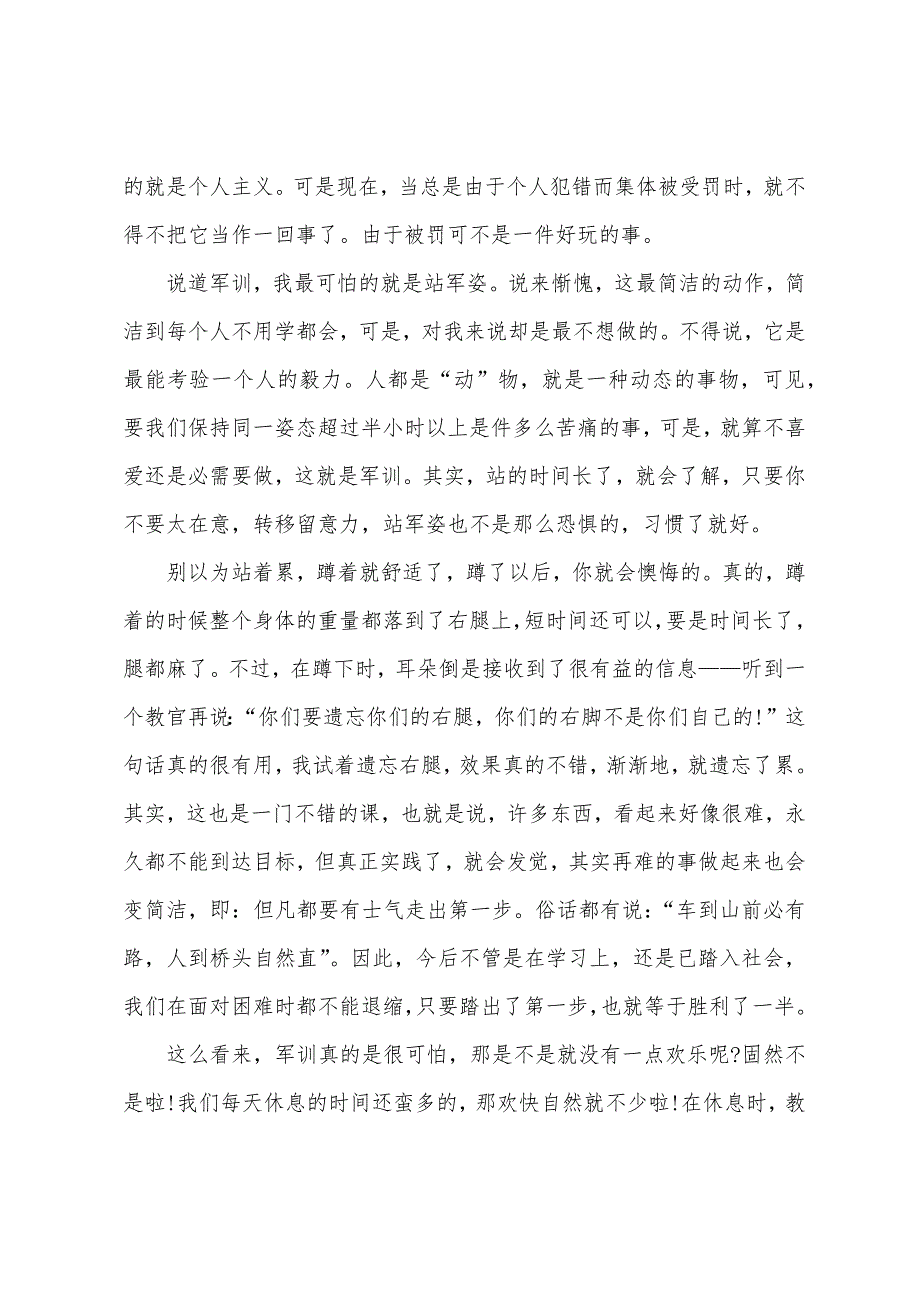 的就是个人主义。可是现在，当总是由于个人犯错而集体被受罚时，就不
得不把它当作一回事了。由于被罚可不是一件好玩的事。
说道军训，我最可怕的就是站军姿。说来惭愧，这最简洁的动作，简
洁到每个人不用学都会，可是，对我来说却是最不想做的。不得说，它是
最能考验一个人的毅力。人都是“动”物，就是一种动态的事物，可见，
要我们保持同一姿态超过半小时以上是件多么苦痛的事，可是，就算不喜
爱还是必需要做，这就是军训。其实，站的时间长了，就会了解，只要你
不要太在意，转移留意力，站军姿也不是那么恐惧的，习惯了就好。
别以为站着累，蹲着就舒适了，蹲了以后，你就会懊悔的。真的，蹲
着的时候整个身体的重量都落到了右腿上，短时间还可以，要是时间长了，
腿都麻了。不过，在蹲下时，耳朵倒是接收到了很有益的信息——听到一
个教官再说：“你们要遗忘你们的右腿，你们的右脚不是你们自己的!”这
句话真的很有用，我试着遗忘右腿，效果真的不错，渐渐地，就遗忘了累。
其实，这也是一门不错的课，也就是说，许多东西，看起来好像很难，永
久都不能到达目标，但真正实践了，就会发觉，其实再难的事做起来也会
变简洁，即：但凡都要有士气走出第一步。俗话都有说：“车到山前必有
路，人到桥头自然直”。因此，今后不管是在学习上，还是已踏入社会，
我们在面对困难时都不能退缩，只要踏出了第一步，也就等于胜利了一半。
这么看来，军训真的是很可怕，那是不是就没有一点欢乐呢?固然不
是啦!我们每天休息的时间还蛮多的，那欢快自然就不少啦!在休息时，教